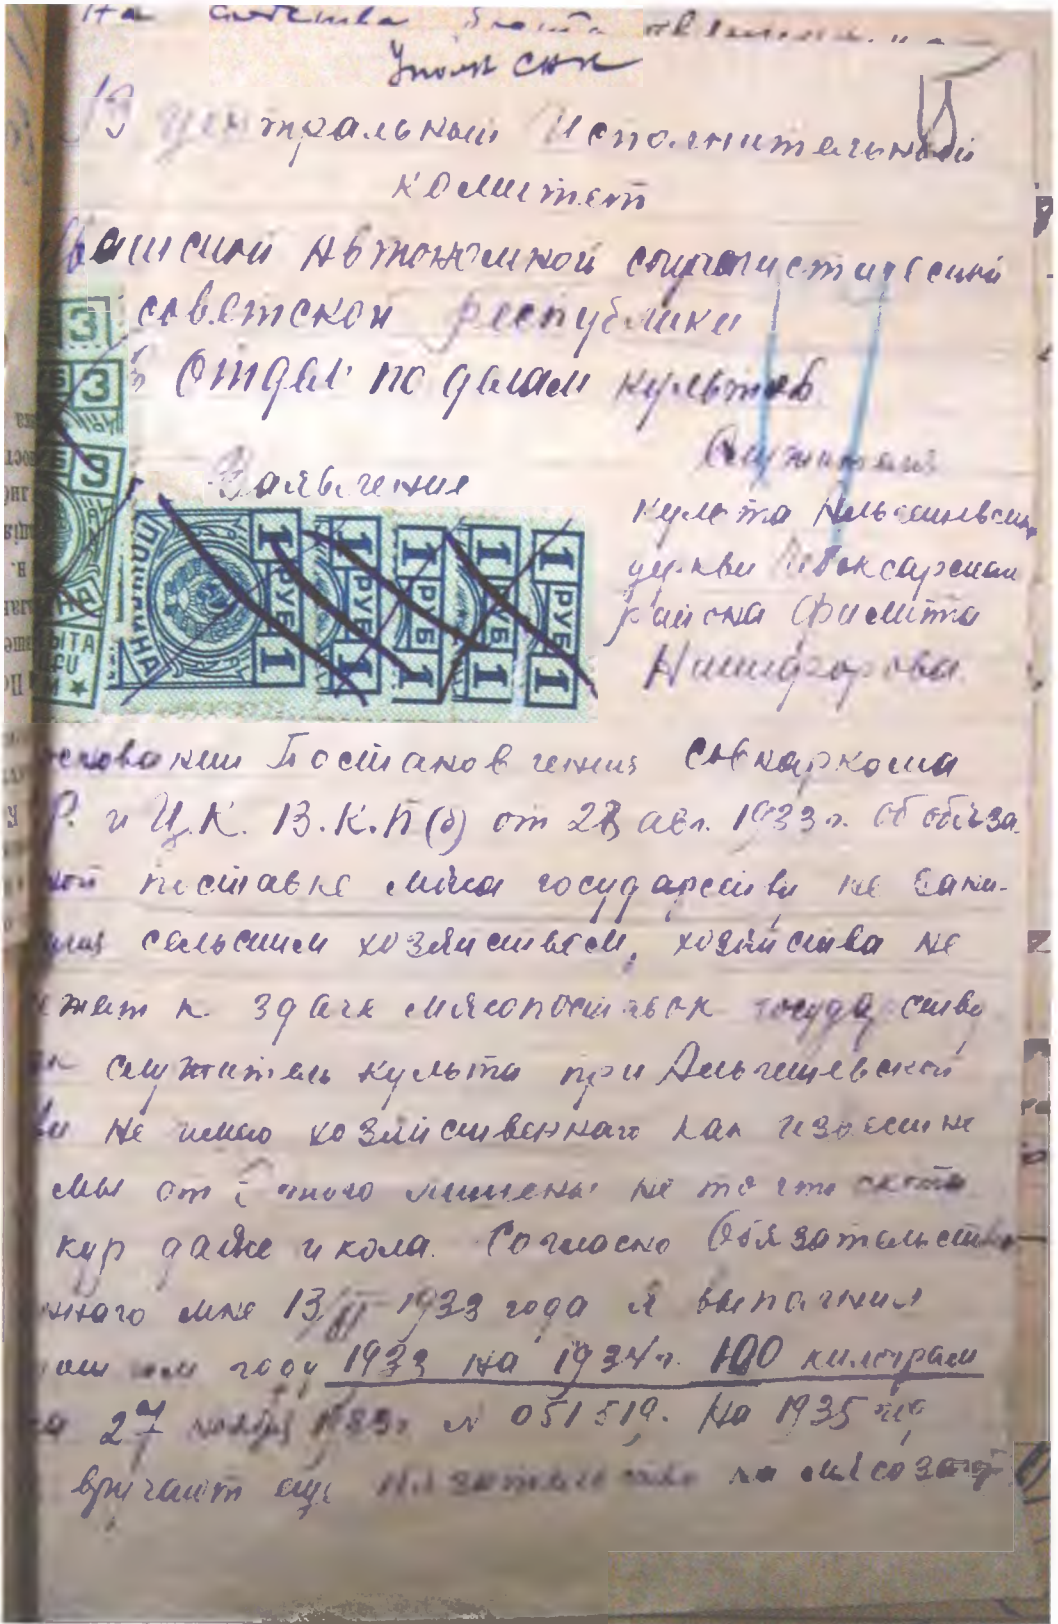 Уполн СНК
В центральный Исполнительный
комитет
Чувашской Автономной социалистической
советской республики
в Отдел по делам культов
Заявление
Служителя
культа Альгешевской
церкви Чебоксарского
района Филиппа
Никифорова.
3
3
3
1 РУБ 1
1 РУБ 1
1 РУБ 1
1 РУБ 1
1 РУБ 1
сновании Постановления Совнаркома
Р. и Ц.К. В.К.П(б) от 23 авг. 1933 г. Об обяза
ной поставке мяса государству не зани-
сельским хозяйством, хозяйства не
ежат к здаче мясопоставок государству
ак служитель культа при Альгешевской
ви не имею хозяйственнаго как известно
мы от лишены не то что скота
кур даже и кола. Согласно Обязательства
ннаго мне 13/II 1933 года я выполнил
году 1933 на 1934 г. 100 килограм
27 ноября 1933 г № 051519. На 1935 год
вручают еще обязательство на мясозагот